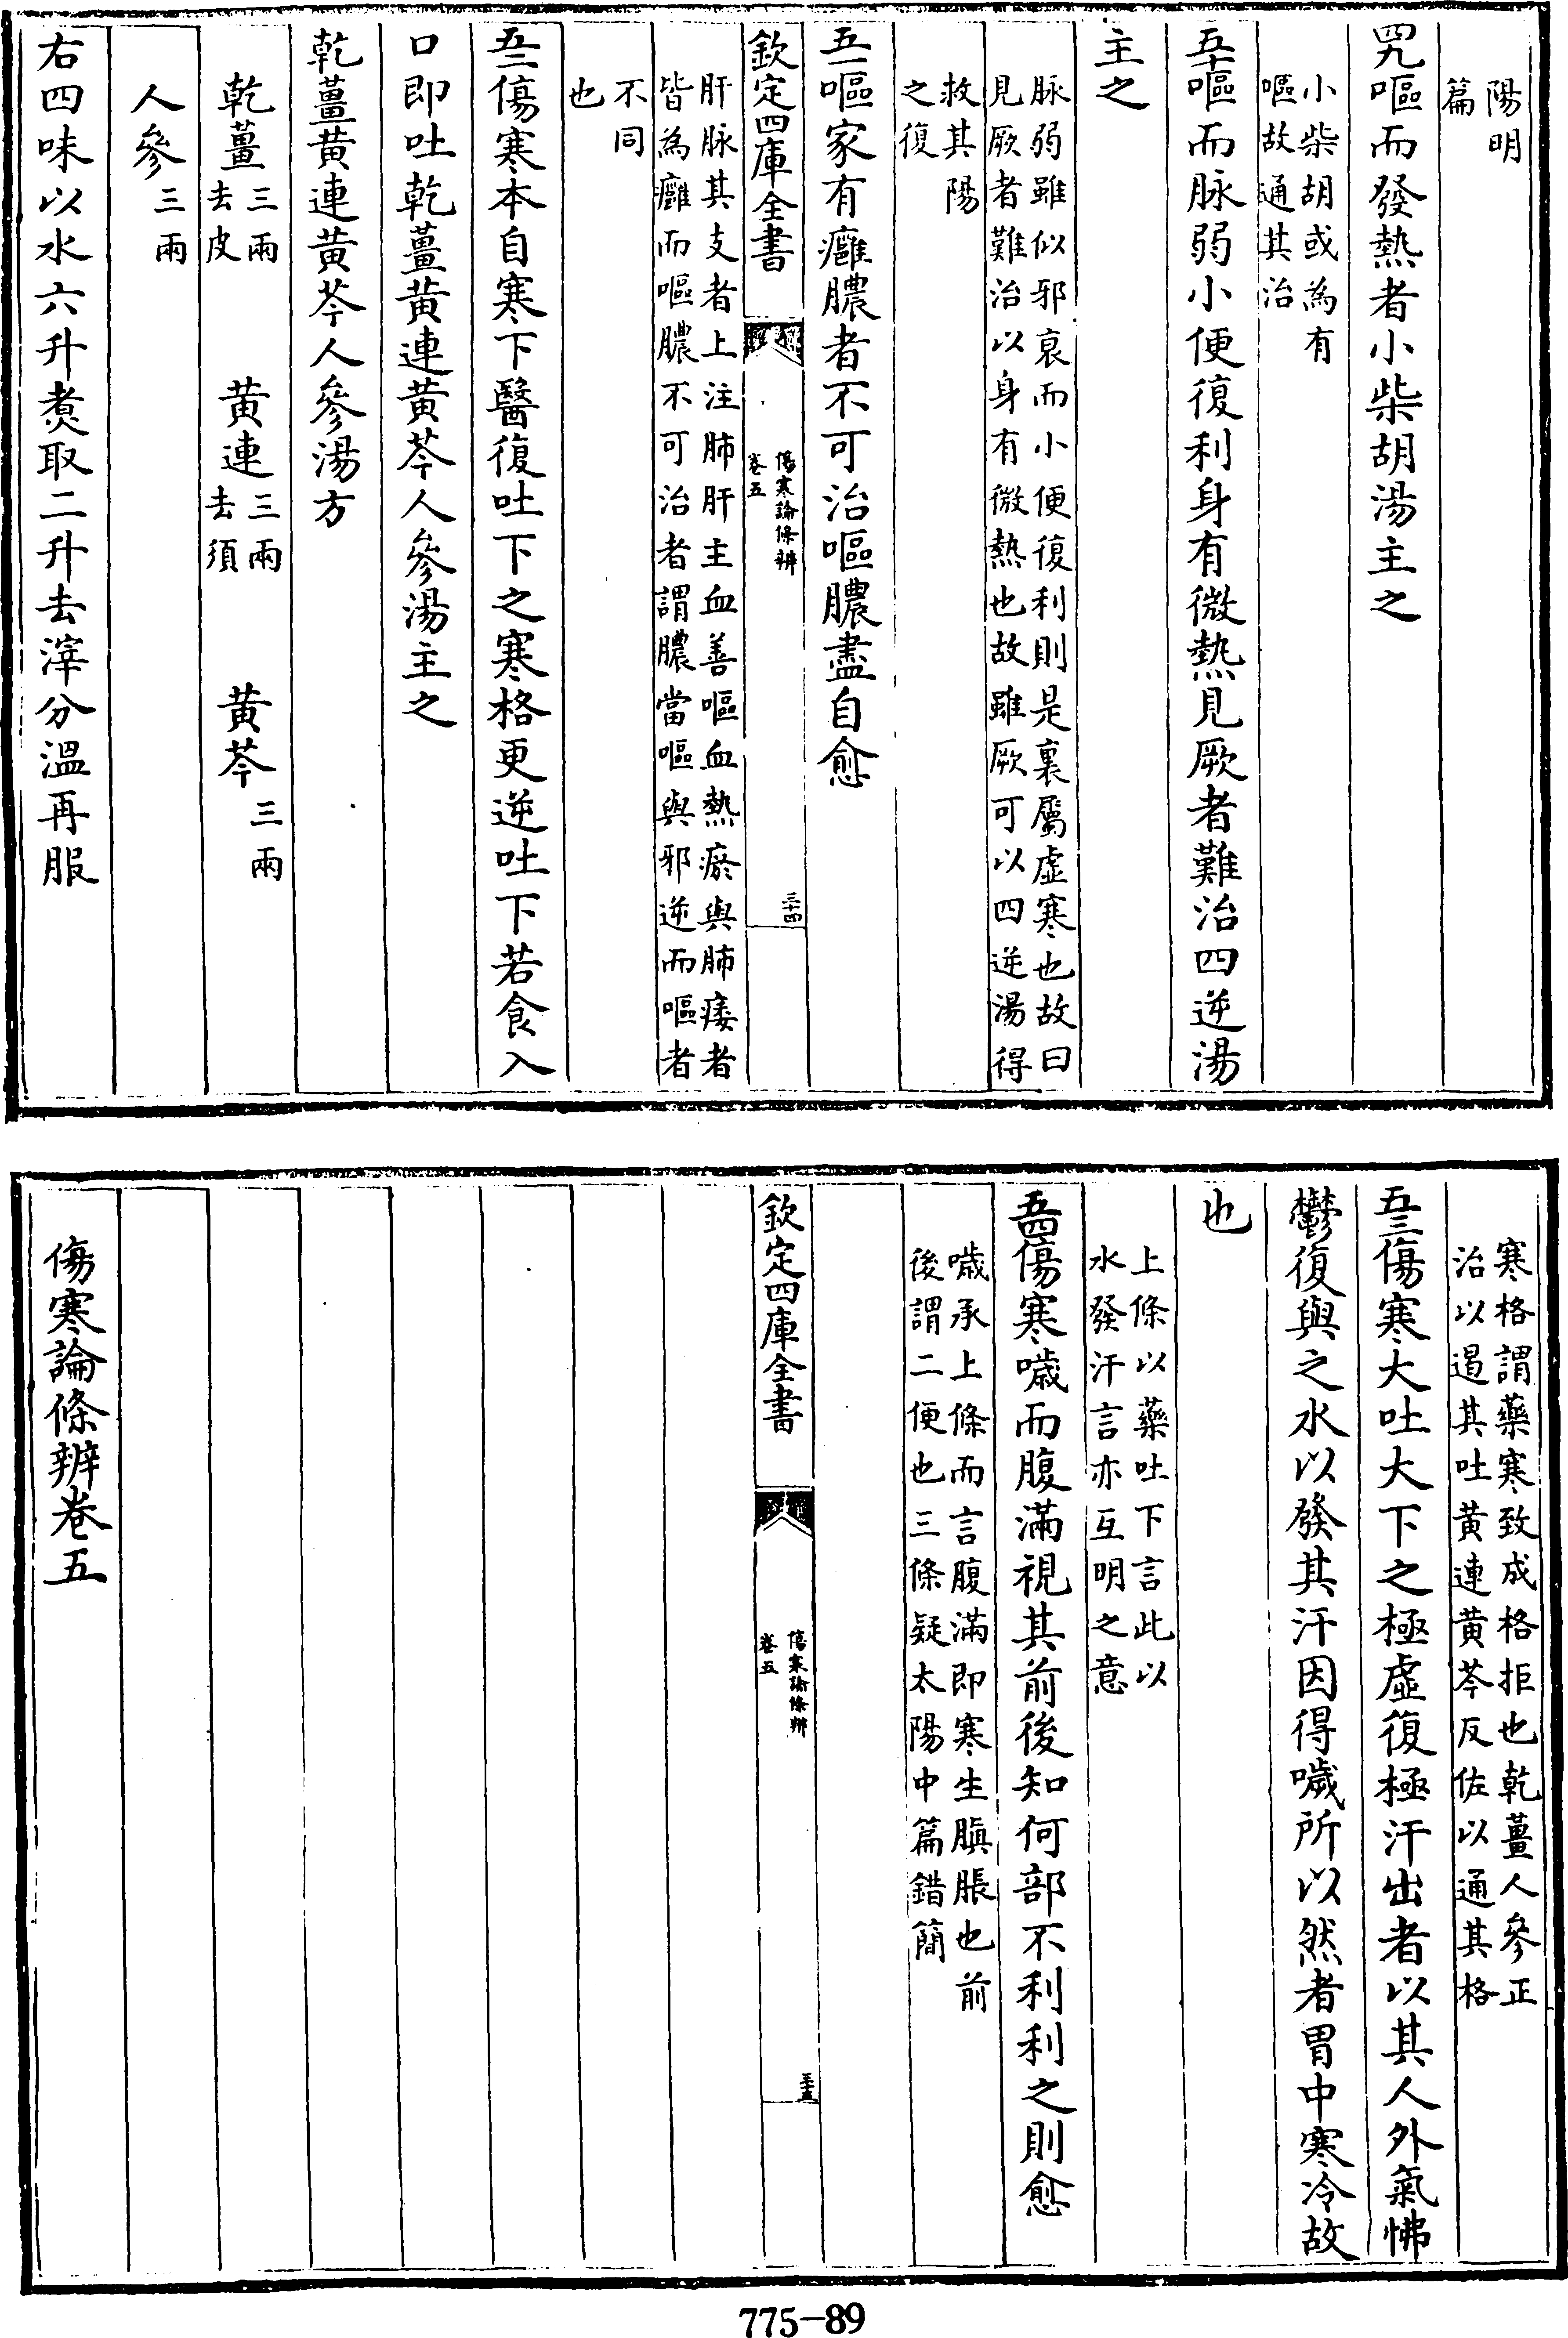 陽明
篇
四九嘔而發熱者小柴胡湯主之
小柴胡或為有
嘔故通其治
五十嘔而脉弱小便復利身有微熱見厥者難治四逆湯
主之
脉弱雖似邪衰而小便復利則是裏屬虛寒也故曰
見厥者難治以身有微熱也故雖厥可以四逆湯得
救其陽
之復
五一嘔家有癰膿者不可治嘔膿盡自愈
欽定四庫全書
傷寒論條辨
卷五
三十四
肝脉其支者上注肺肝主血善嘔血熱瘀與肺痿者
皆為癰而嘔膿不可治者謂膿當嘔與邪逆而嘔者
不同
也
五二傷寒本自寒下醫復吐下之寒格更逆吐下若食入
口即吐乾薑黃連黃芩人參湯主之
乾薑黃連黃芩人參湯方
乾薑三兩去皮 黃連三兩去須 黃芩三兩
人參三兩
右四味以水六升煑取二升去滓分溫再服
寒格謂藥寒致成格拒也乾薑人參正
治以遏其吐黃連黃芩反佐以通其格
五三傷寒大吐大下之極虛復極汗出者以其人外氣怫
鬱復與之水以發其汗因得噦所以然者胃中寒冷故
也
上條以藥吐下言此以
水發汗言亦互明之意
五四傷寒噦而腹滿視其前後知何部不利利之則愈
噦承上條而言腹滿即寒生䐜脹也前
後謂二便也三條疑太陽中篇錯簡
欽定四庫全書
傷寒論條辨
卷五
三十五
傷寒論條辨卷五
775-89